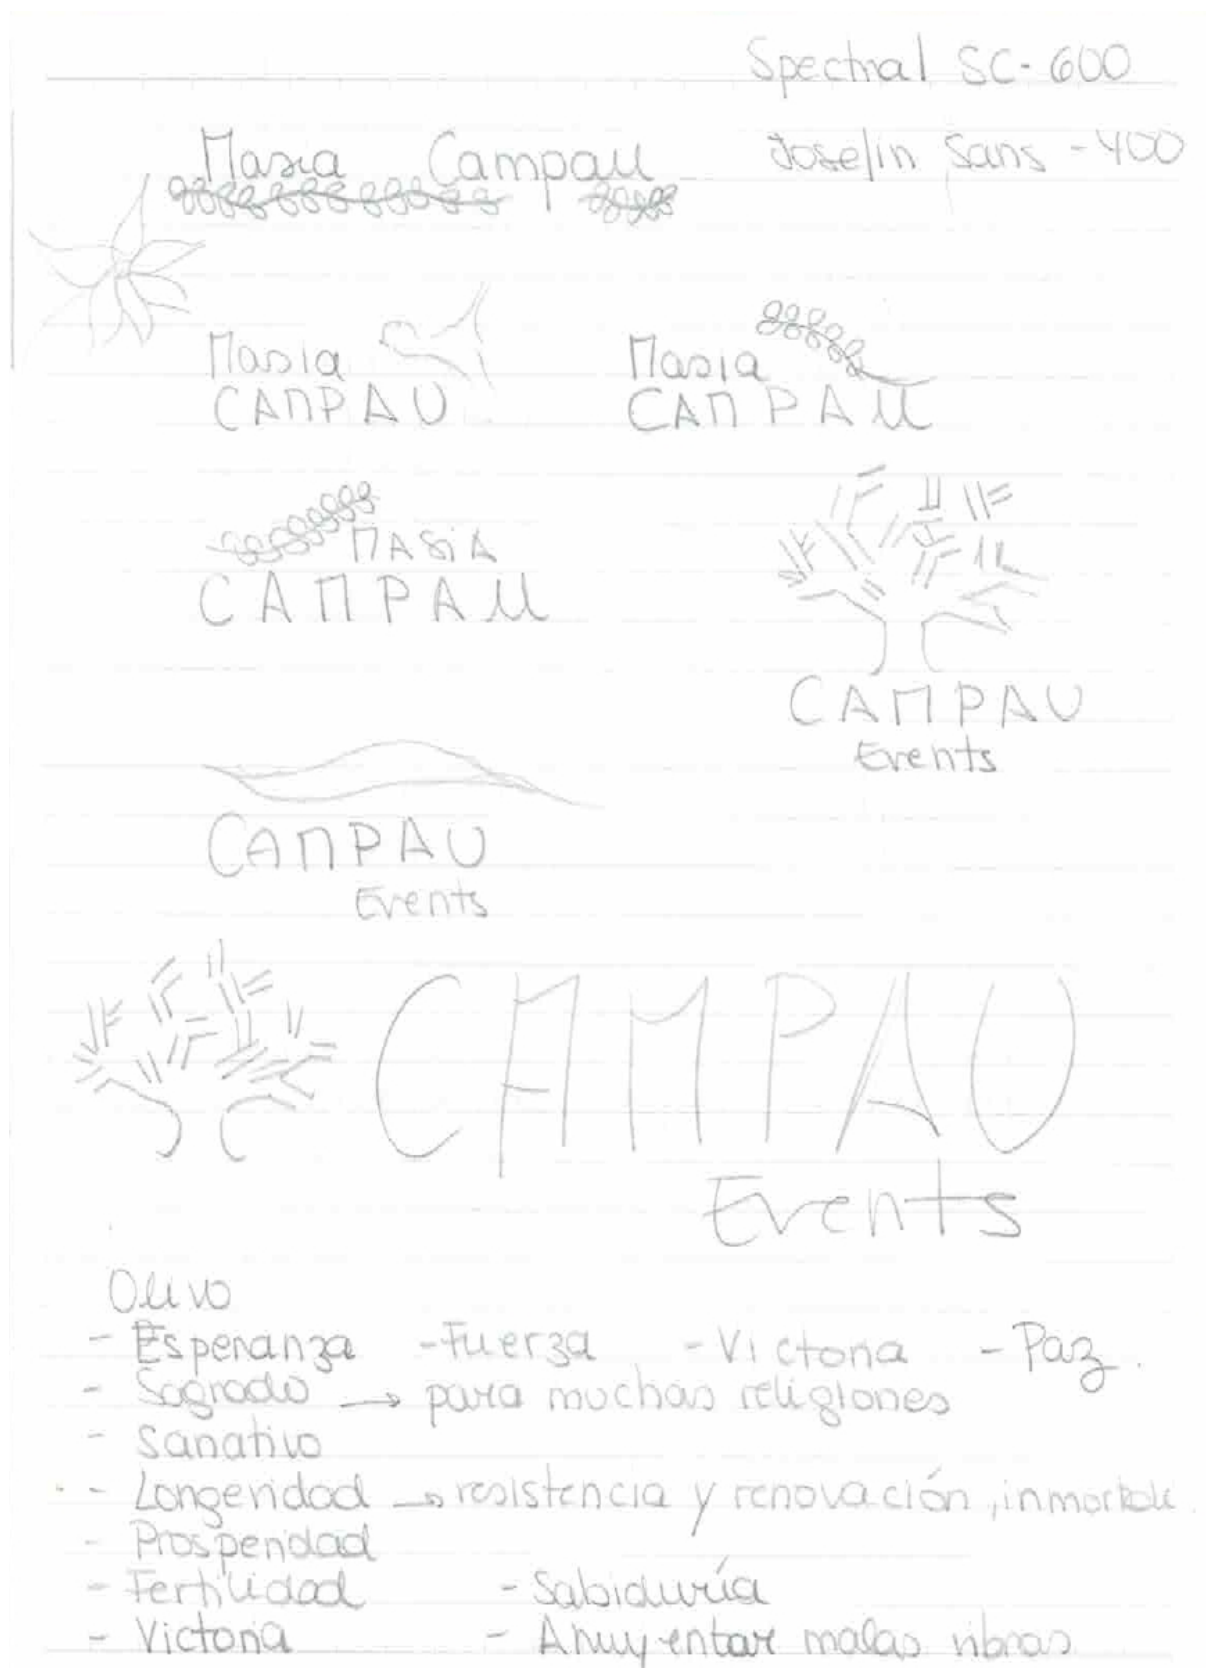 Spectral SC-600
Joselin Sans - 400
Masia Campau
Masia
CAMPAU
Masia
CAMPAU
MASiA
CAMPAU
CAMPAU
Events
CAMPAU
Events
CAMPAU
Events
Olivo
- Esperanza - Fuerza - Victoria - Paz.
- Sagrado → para muchas religiones
- Sanativo
- Longevidad → resistencia y renovación, inmortale.
- Prosperidad
- Fertilidad - Sabiduría
- Victoria - Ahuyentar malas vibras